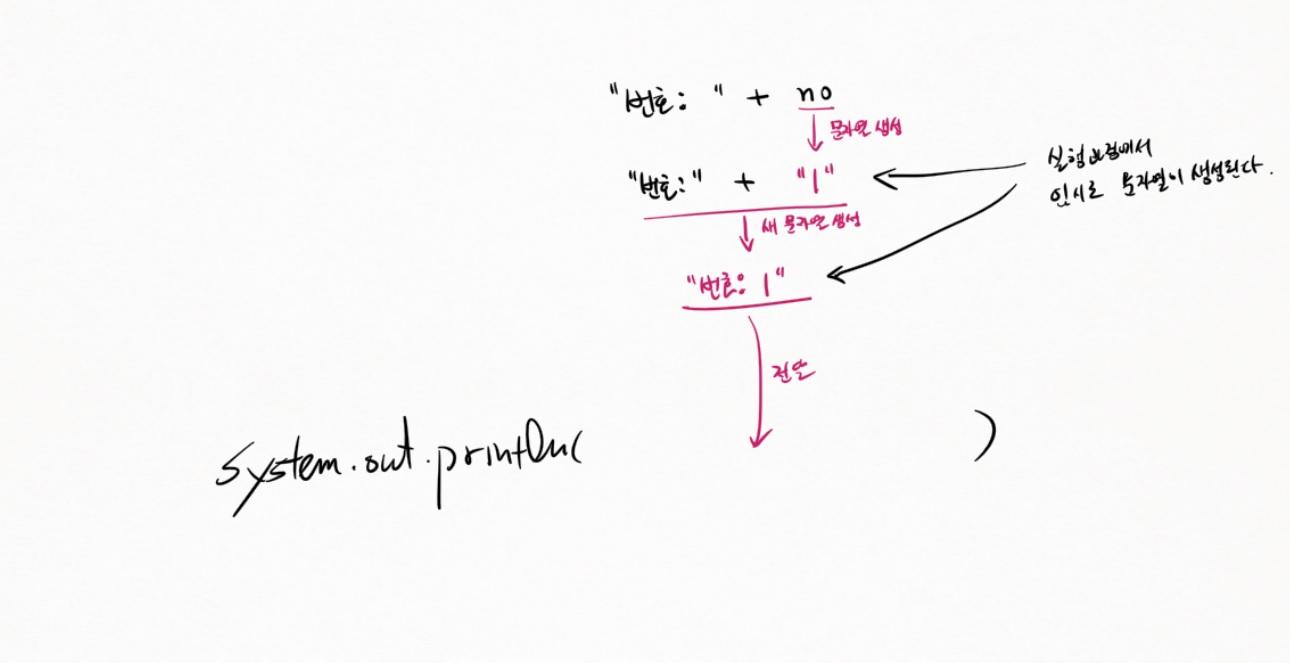 "번호: " + no
문자열 생성
"번호:" + "1"
실험 과정에서
임시로 문자열이 생성된다.
새 문자열 생성
"번호: 1"
전달
system.out.println( )